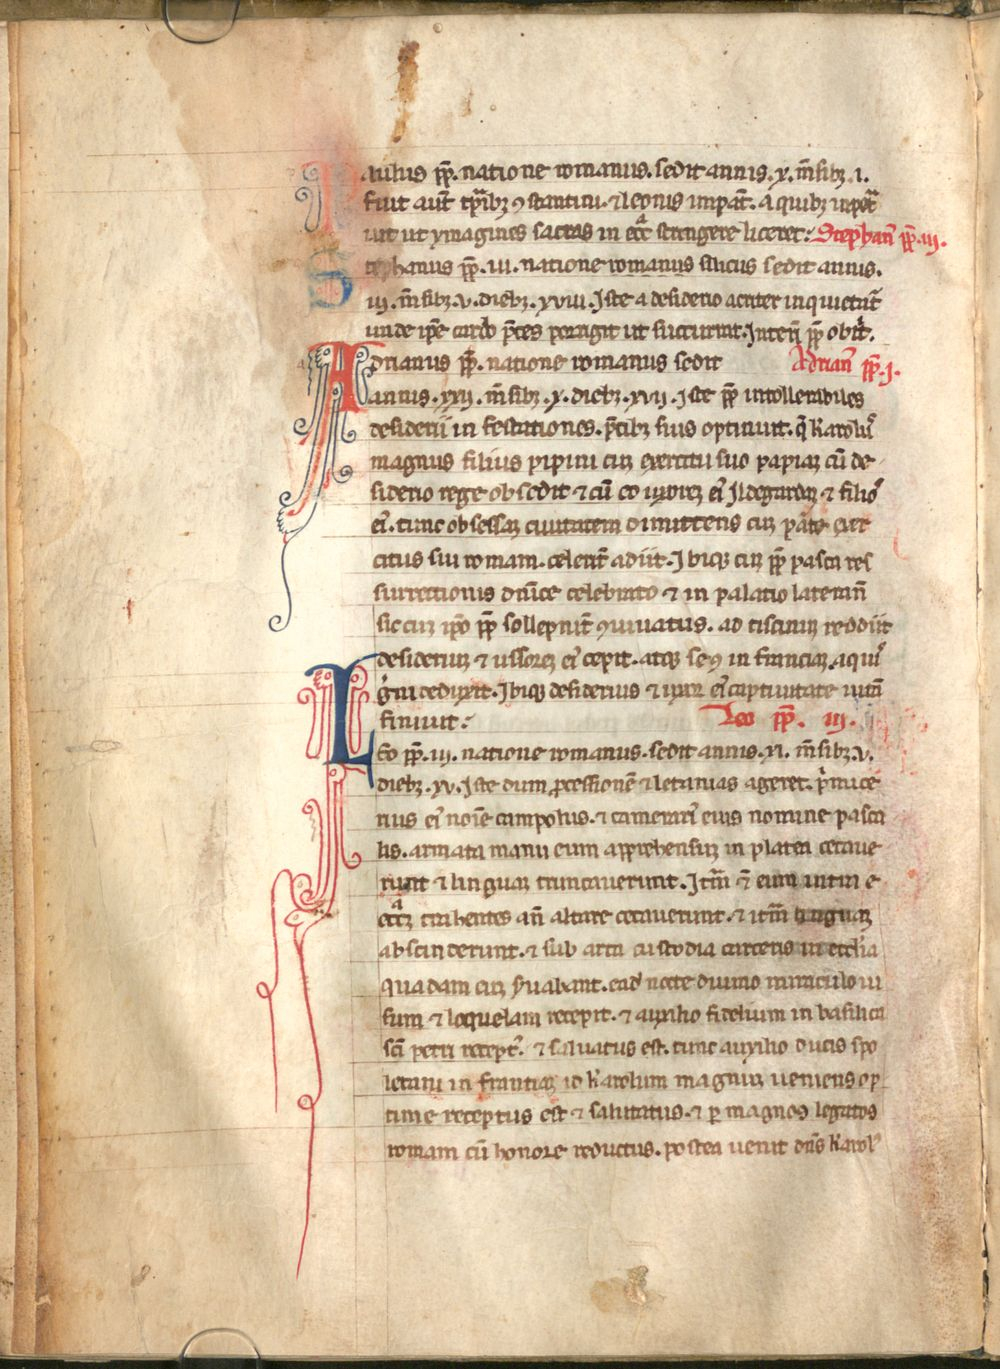 Paulus pp̄. natione romanus. sedit annis. x. m̄sibꝫ .i.
fuit aut̄ tꝑibꝫ ꝯstantini. ⁊ leonis impat̄. a quibꝫ inpet͛
uit ut ymagines sacras in ecc̄ stringere liceret: Stephan̄ pp̄. iii.
Stephanus pp̄. iii. natione romanus siculus sedit annis.
iii. m̄sibꝫ. v. diebꝫ. xviii. Iste a desiderio acriter inquietat᷑
unde ip̄e carolo p̄ces porrigit ut succurrat. Interī pp̄ obiit.
Adrianus pp̄. natione romanus sedit Adrian̄ pp̄. I.
annis. xxii. m̄sibꝫ. x. diebꝫ. xvii. Iste pp̄ intollerabiles
desiderii in festationes. p̄cibꝫ suis optinuit. q̄ karolus
magnus filius pipini cuꝫ exercitu suo papiaꝫ cū de
siderio rege obsedit ⁊ cū eo uxoreꝫ eī Ildegardaꝫ ⁊ filios
eī. tunc obsessaꝫ ciuitatem dimittens cuꝫ parte exer
citus sui romam. celerit̄ adiit. Ibiqꝫ cuꝫ pp̄ pasca res
surrectionis dn̄ice celebrato ⁊ in palatio lateran̄
sic cuꝫ ip̄o pp̄ sollepnit̄ ꝯuiuatus. ad ticinuꝫ rediit
desideriuꝫ ⁊ ussoreꝫ eī cepit. atqꝫ secuꝫ in franciaꝫ. aquis
g̃ni deduxit. Ibiqꝫ desiderius ⁊ uxor eī captiuitate uitā
finiuit: Leo pp̄. iii.
Leo pp̄. iii. natione romanus. sedit annis. xi. m̄sibꝫ. v.
diebꝫ. xv. Iste dum ꝓcessionē ⁊ letanias ageret. p̄mice
rius eī noīe campolus. ⁊ camerari᷒ euis nomine pasca
lis. armata manu eum apprehensuꝫ in platea cecaue
runt ⁊ linguaꝫ truncauerunt. Itm̄ ⁊ eum intra e
ccaꝫ trahentes an̄ altare cecauerunt. ⁊ itm̄ linguaꝫ
absciderunt. ⁊ sub arta custodia carceris in eccl'ia
quadam cuꝫ s̄uabant. ead̄ nocte diuino miraculo ui
sum ⁊ loquelam recepit. ⁊ auxilio fidelium in basilica
sc̄i petri recept᷒. ⁊ saluatus est. tunc auxilio ducis spo
letani in franciaꝫ ad karolum magnuꝫ ueniens op
time receptus est ⁊ salutatus. ⁊ ꝑ magnos legatos
romam cū honore reductus. postea uenit dn̄s karol᷒